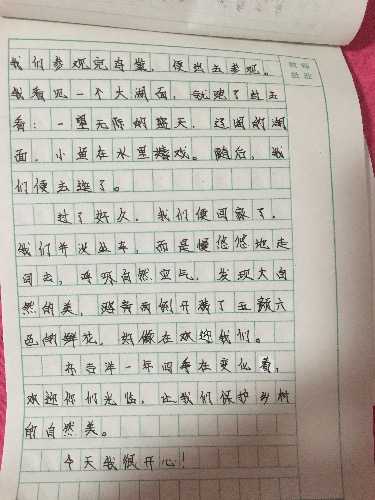 我们参观完奇鉴，便出去参观。
我看见一个大湖面，就跑了过去
看：一望无际的蓝天，辽阔的湖
面，小鱼在水里嬉戏。随后，我
们便去逛了。
过了好久，我们便回家了，
我们并没坐车，而是慢悠悠地走
回去，呼吸自然空气，发现大自
然的美，路旁两侧开满了五颜六
色的鲜花，好像在欢迎我们。
一年四季在变化着，
欢迎你们光临，让我们保护乡村
的自然美。
今天我很开心！